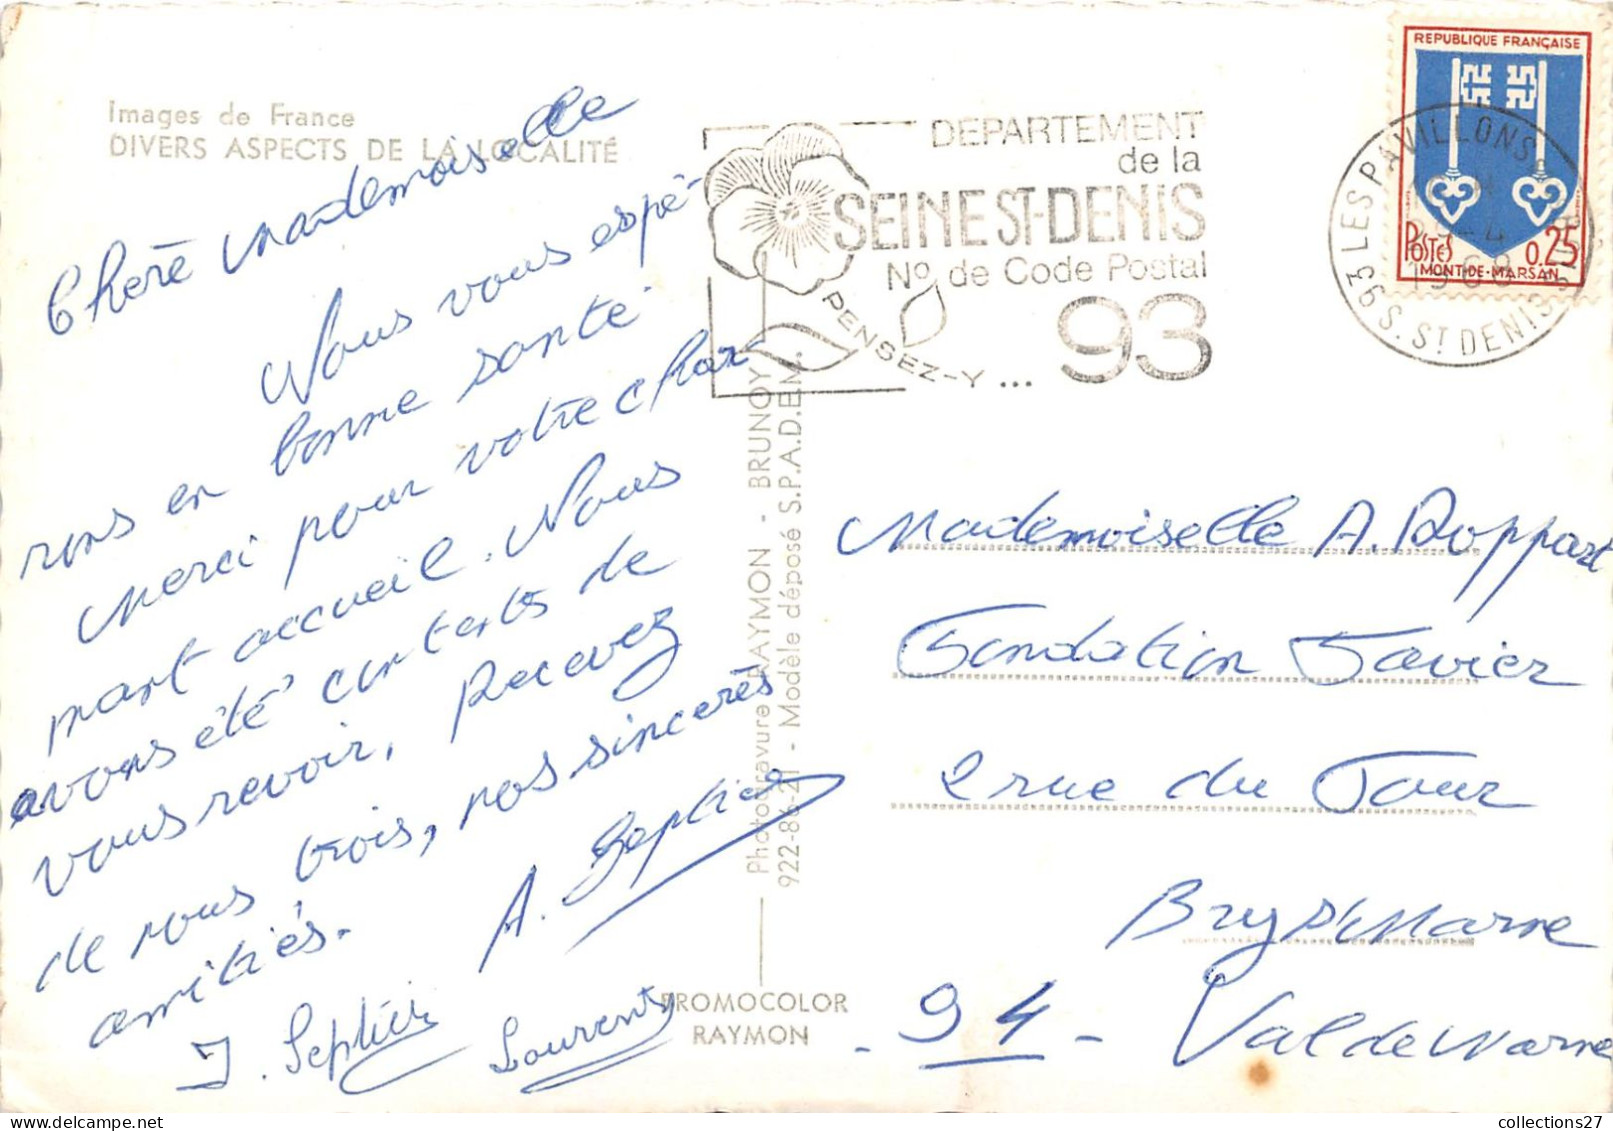 Images de France
DIVERS ASPECTS DE LA LOCALITÉ
Chère Mademoiselle
Nous vous espé-
rons en bonne santé
Merci pour votre char
mant accueil. Nous
avons été contents de
vous revoir. Recevez
de nous trois, nos sincères
amitiés.
A. Septier
J. Septier
Laurent
DEPARTEMENT
de la
SEINE ST-DENIS
No de Code Postal
93
PENSEZ-Y...
REPUBLIQUE FRANÇAISE
POSTES
0.25
MONT-DE-MARSAN
LES PAVILLONS
1968
93 S. ST DENIS
Photogravure RAYMON - BRUNOY
922-86-21 - Modèle déposé S.P.A.D.E.M.
PROMOCOLOR
RAYMON
Mademoiselle A. Roppart
Fondation Favier
2 rue du Four
Bry S/ Marne
- 94 - Val de Marne
collections27